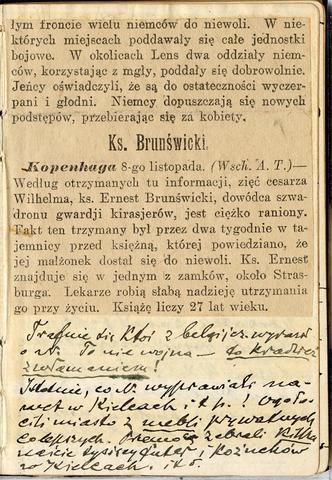 łym froncie wielu niemców do niewoli. W nie-
których miejscach poddawały się całe jednostki
bojowe. W okolicach Lens dwa oddziały niem-
ców, korzystając z mgły, poddały się dobrowolnie.
Jeńcy oświadczyli, że są do ostateczności wyczer-
pani i głodni. Niemcy dopuszczają się nowych
podstępów, przebierając się za kobiety.
Ks. Brunświcki.
Kopenhaga 8-go listopada. (Wsch. A. T.)—
Według otrzymanych tu informacji, zięć cesarza
Wilhelma, ks. Ernest Brunświcki, dowódca szwa-
dronu gwardji kirasjerów, jest ciężko raniony.
Fakt ten trzymany był przez dwa tygodnie w ta-
jemnicy przed księżną, której powiedziano, że
jej małżonek dostał się do niewoli. Ks. Ernest
znajduje się w jednym z zamków, około Stras-
burga. Lekarze robią słabą nadzieję utrzymania
go przy życiu. Książę liczy 27 lat wieku.
Trafnie się ktoś z belgijcz. wyraził
o To nie wojna — to kradzież
z włamaniem!
Istotnie, co oni wyprawiali na-
wet w Kielcach i t p.! ogoło-
cili miasto z mebli prywatnych
co lepszych. zabrali kilka-
naście tysięcy futer i kożuchów
w Kielcach. i t d.